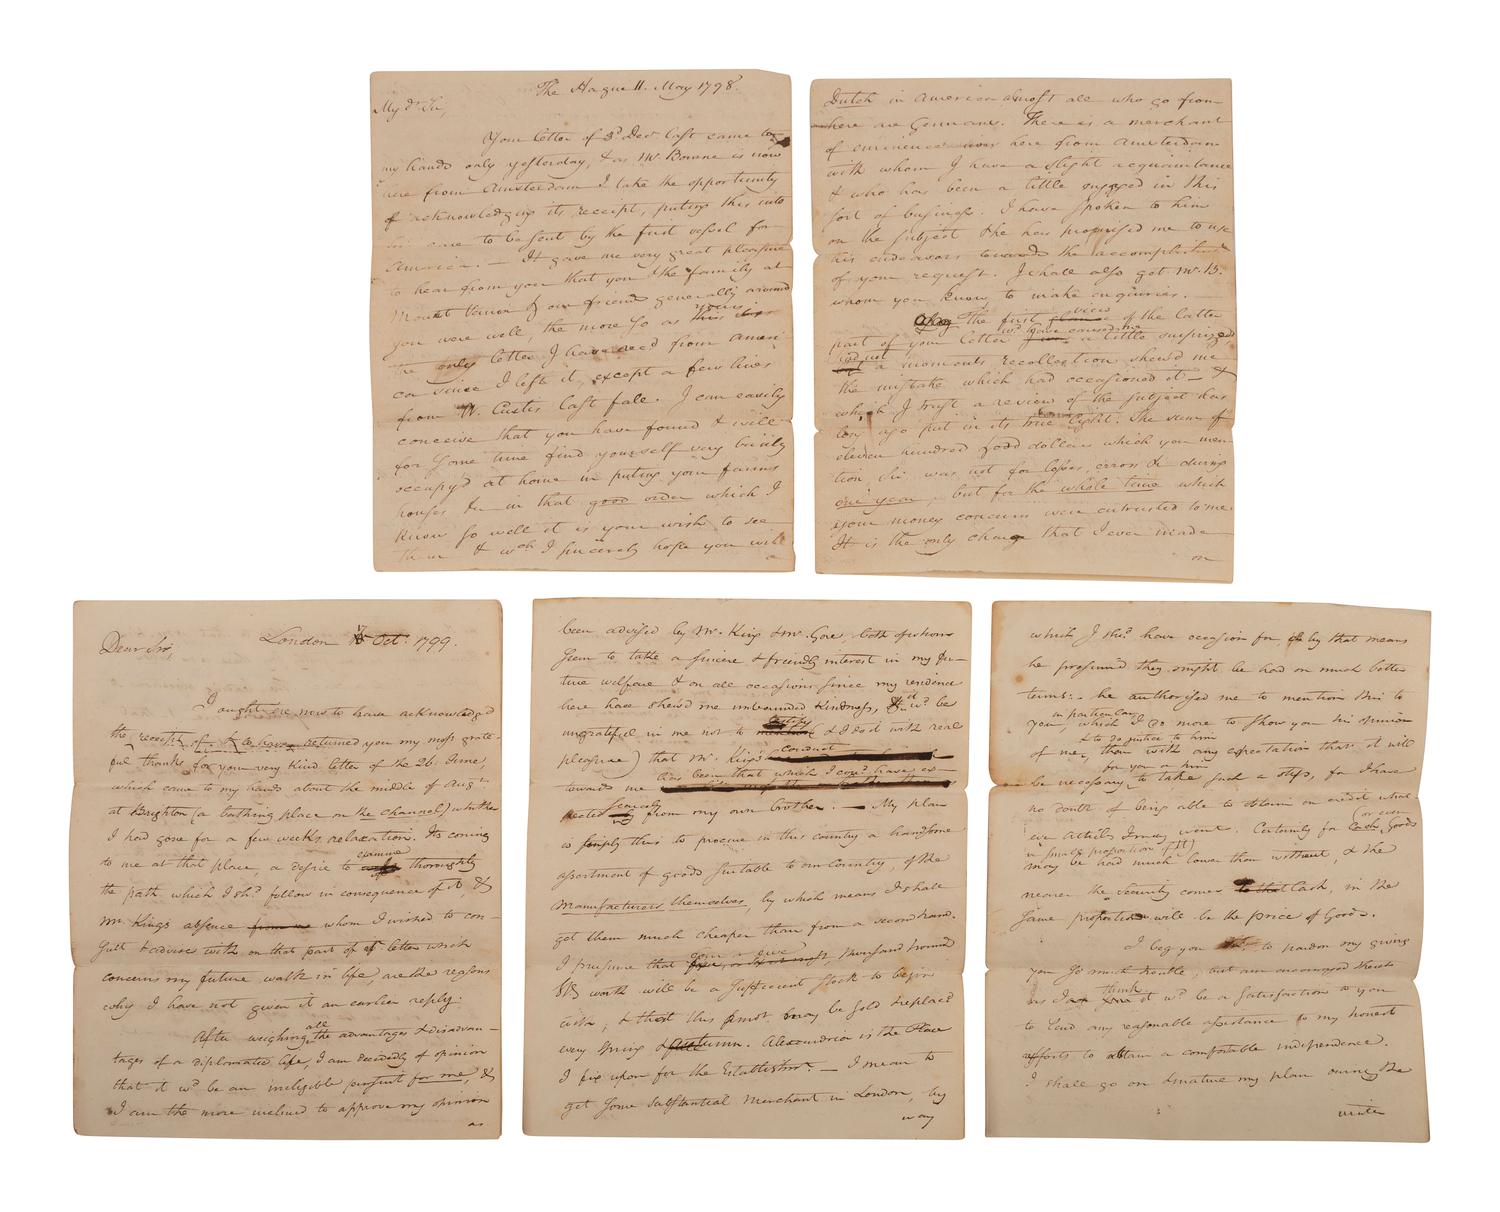 The Hague 11. May 1798.
My dr Sir,
Your letter of 3d Decr last came to
my hands only yesterday, & as Mr. Bourne is now
here from Amsterdam I take the opportunity
of acknowledging its receipt, puting this into
his care to be sent by the first vessel for
America. — It gave me very great pleasure
to hear from you that you & the family at
Mount Vernon & our friends generally around
you were well, the more so as yours is
the only letter I have recd from Ameri
ca since I left it, except a few lines
from W. Custis last fall. I can easily
conceive that you have found & will
for some time find yourself very busily
occupy'd at home in puting your farms
houses &c in that good order which I
know so well it is your wish to see
them & wch I sincerely hope you will
Dutch in America almost all who go from
here are Germans. There is a merchant
of eminence now here from Amsterdam
with whom I have a slight acquaintance
& who has been a little engaged in this
sort of business. I have spoken to him
on the subject & he has promised me to use
his endeavors towards the accomplishment
of your request. I shall also get Mr. B.
whom you know, to make enquiries. —
The first view of the latter
part of your letter wd have caused me a little surprize
had not a moments recollection shew'd me
the mistake which had occasioned it — &
which I trust a review of the subject has
long ago put in its true light. The sum of
eleven hundred & odd dollars which you men
tion Sir was not for losses, errors &c during
one year, but for the whole time which
your money concerns were entrusted to me.
It is the only charge that I ever made
on
London Oct. 1799.
Dear Sir,
I ought ere now to have acknowledg'd
the receipt of & to have returned you my most grate-
ful thanks for your very kind letter of the 26. June,
which came to my hands about the middle of Augt
at Brighton (a bathing place on the channel) whither
I had gone for a few weeks relaxation. Its coming
to me at that place, a desire to examine thoroughly
the path which I shd follow in consequence of it &
Mr. Kings absence from me whom I wished to con-
sult & advise with on that part of yr letter which
concerns my future walk in life, are the reasons
why I have not given it an earlier reply.
After weighing all the advantages & disadvan-
tages of a diplomatic life, I am decidedly of opinion
that it wd be an ineligible pursuit for me, &
I am the more inclined to approve my opinion
as
been advised by Mr. King & Mr. Gore, both of whom
seem to take a sincere & friendly interest in my fu-
ture welfare & on all occasions since my residence
here have shew'd me unbounded kindness, it wd be
ungrateful in me not to testify (& I do it with real
pleasure) that Mr. King's conduct
towards me has been that which I coud have ex-
pected scarcely from my own brother. — My plan
is simply this to procure in this country a handsome
assortment of goods suitable to our Country, of the
Manufacturers themselves, by which means I shall
get them much cheaper than from a second hand.
I presume that four or five thousand pound
Stg worth will be a sufficient stock to begin
with, & that this must may be sold & replac'd
every spring & Autumn. Alexandria is the place
I fix upon for the Establishmt. — I mean to
get some substantial Merchant in London, by
way
which I shd have occasion for, & by that means
he presum'd they might be had on much better
terms: - he authorised me to mention him to
you, in particular, which I do more to show you his opinion
of me, & to do justice to him than with any expectation that it will
be necessary for you or him to take such a step, for I have
no doubt of being able to obtain on credit what-
ever Articles I may want. Certainly for Cash, (or even
a small proportion of it) Goods
may be had much lower than without, & the
nearer the security comes to that Cash, in the
same proportion will be the price of Goods.
I beg you Sir to pardon my giving
you so much trouble, but am encouraged thereto
as I think it wd be a satisfaction to you
to lend any reasonable assistance to my honest
efforts to obtain a comfortable independence.
I shall go on & mature my plan during the
winter